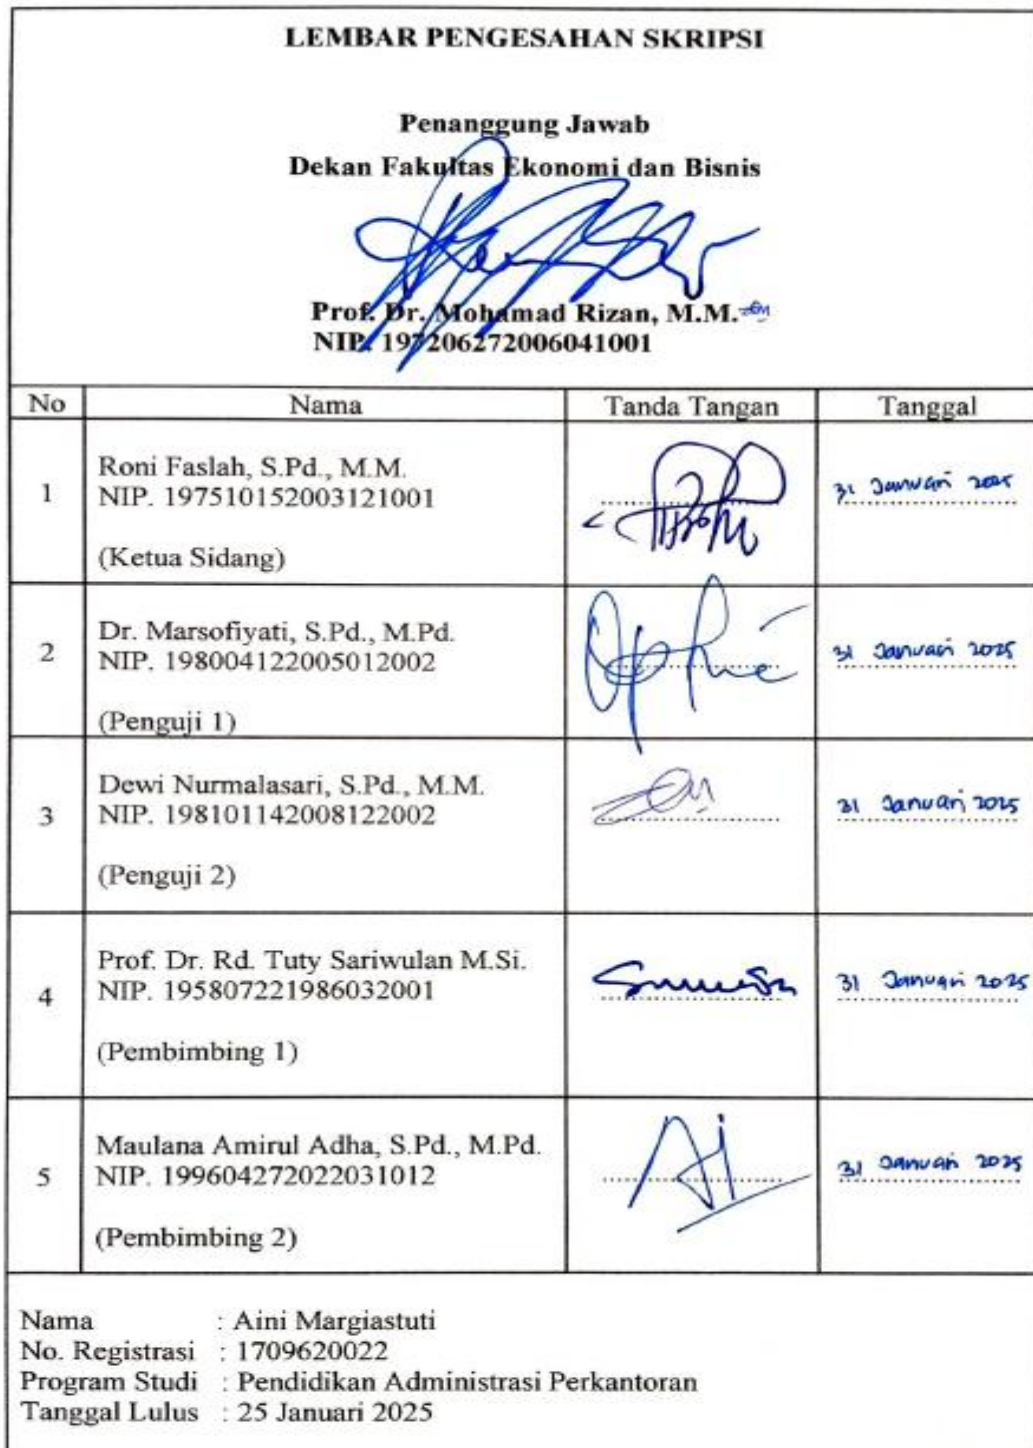 LEMBAR PENGESAHAN SKRIPSI
Penanggung Jawab
Dekan Fakultas Ekonomi dan Bisnis
Prof. Dr. Mohamad Rizan, M.M.
NIP. 197206272006041001
No Nama Tanda Tangan Tanggal
1 Roni Faslah, S.Pd., M.M.
NIP. 197510152003121001
(Ketua Sidang)
31 Januari 2025
2 Dr. Marsofiyati, S.Pd., M.Pd.
NIP. 198004122005012002
(Penguji 1)
31 Januari 2025
3 Dewi Nurmalasari, S.Pd., M.M.
NIP. 198101142008122002
(Penguji 2)
31 Januari 2025
4 Prof. Dr. Rd. Tuty Sariwulan M.Si.
NIP. 195807221986032001
(Pembimbing 1)
31 Januari 2025
5 Maulana Amirul Adha, S.Pd., M.Pd.
NIP. 199604272022031012
(Pembimbing 2)
31 Januari 2025
Nama : Aini Margiastuti
No. Registrasi : 1709620022
Program Studi : Pendidikan Administrasi Perkantoran
Tanggal Lulus : 25 Januari 2025